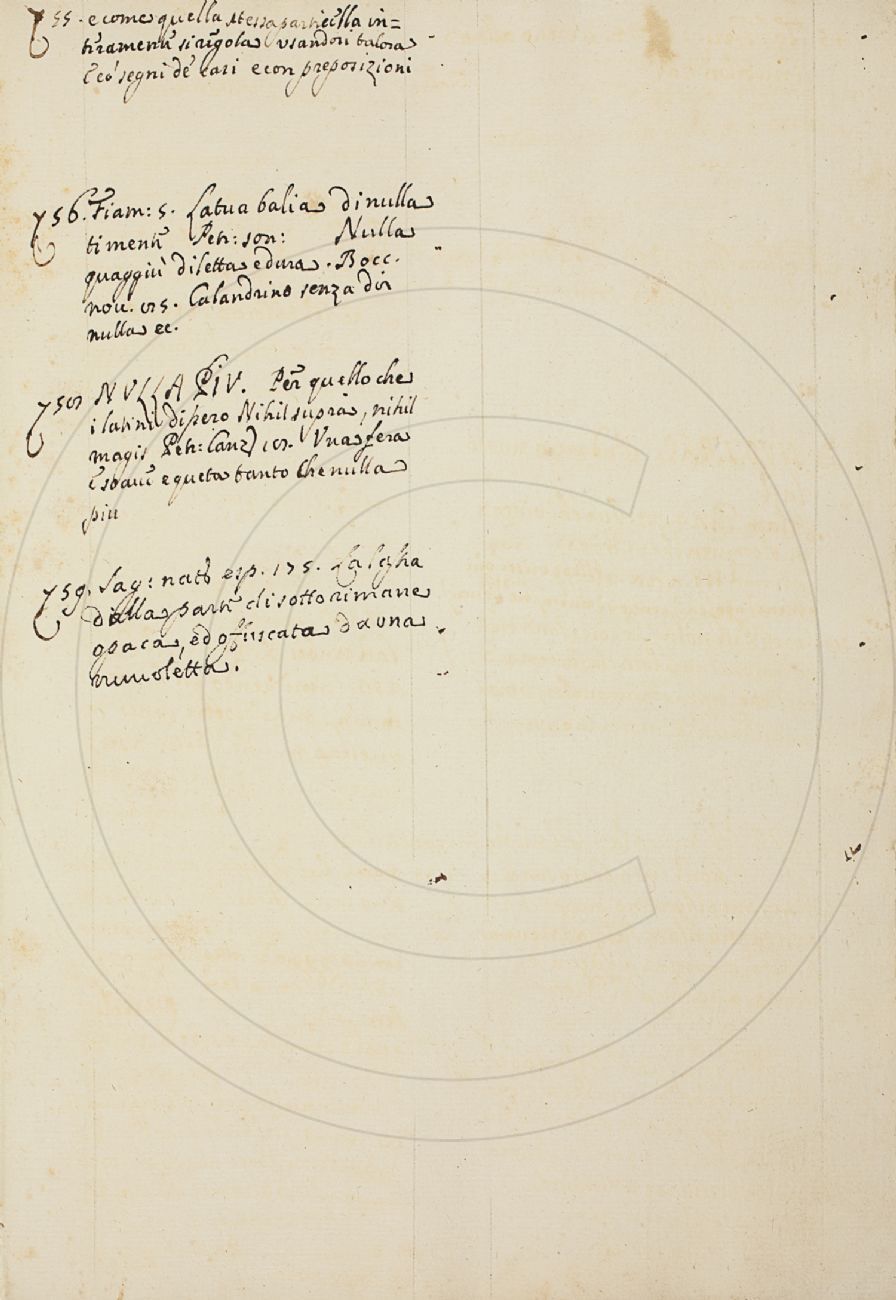 755. e come quella stessa particella in=
tieramente si regola usandosi talora
e co' segni de' casi e con preposizioni
756. Fiam: 5. La tua balia di nulla
ti mente Petr: son: Nulla
quaggiù diletta e dura. Bocc.
nov. 75. Calandrino senza dir
nulla ec.
757 NULLA PIV. Per quello che
i latini dissero Nihil supra, nihil
magis Petr: Canz) 17. Una fera
È soave e queta tanto che nulla
piu
759. Sag: nat: esp. 175. La
dalla parte di sotto rimane
opaca, ed offuscata da una
nuvoletta.